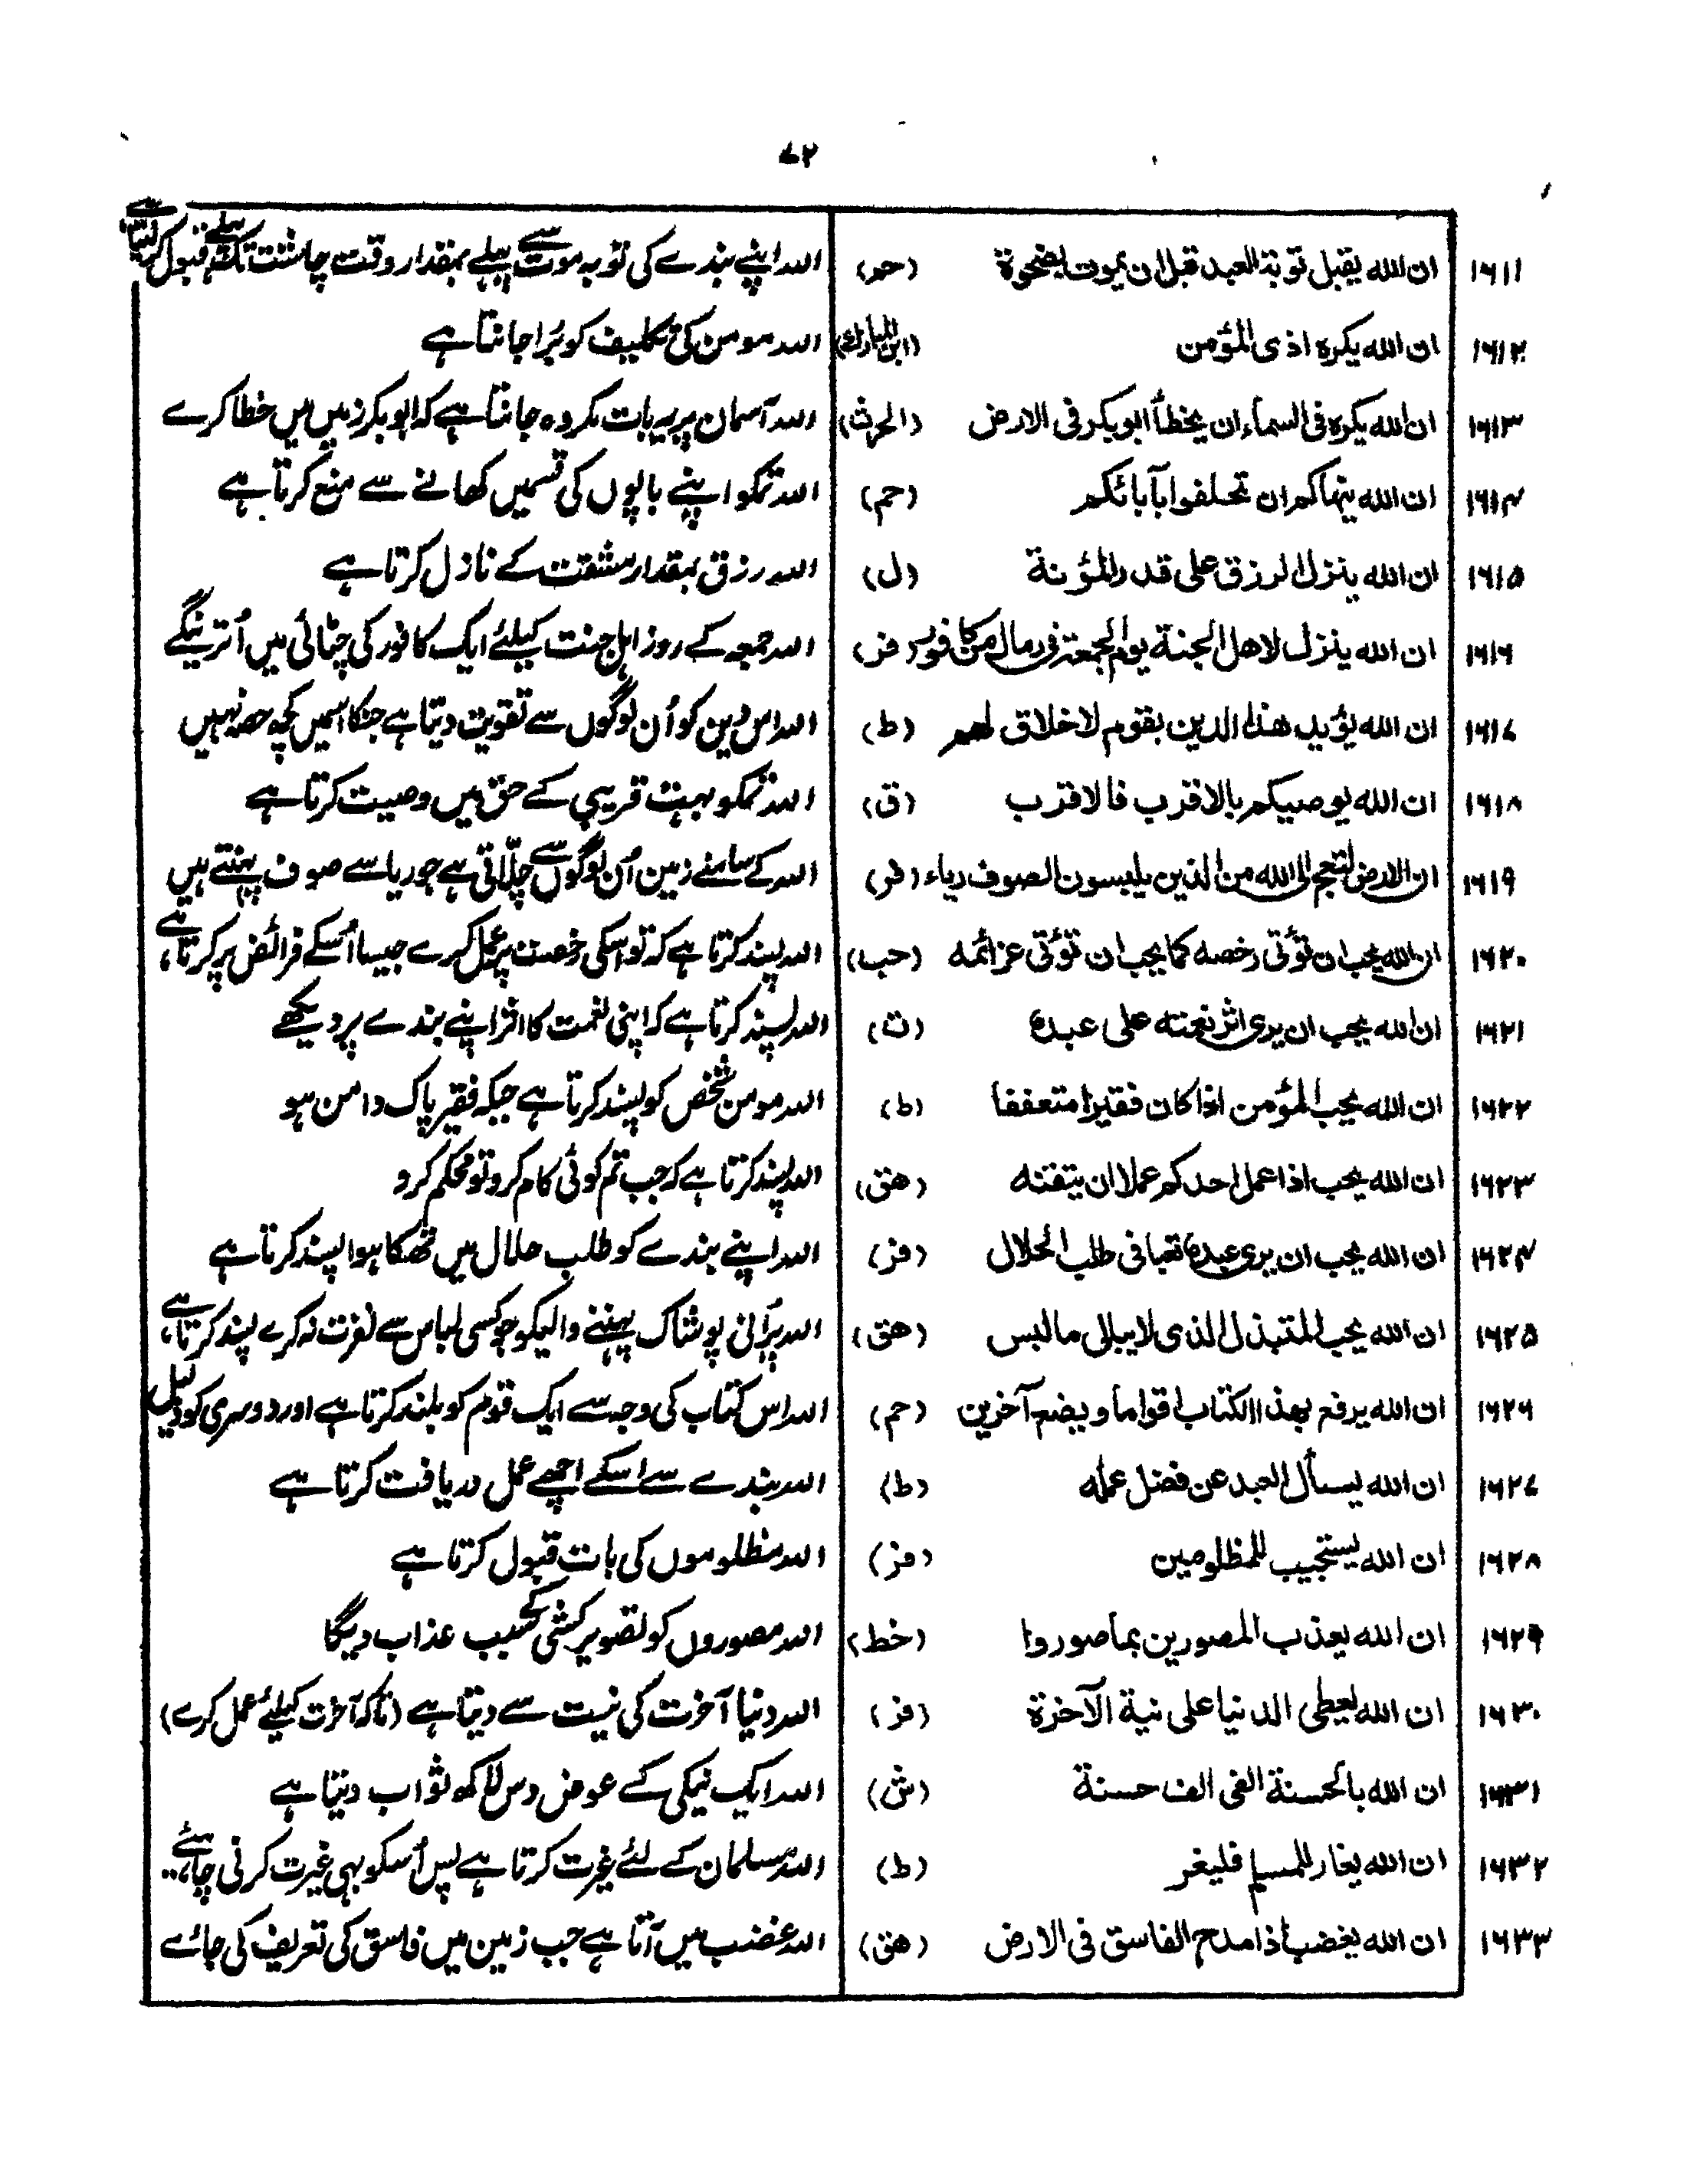 ۷۲
۱۶۱۱ ان الله يقبل توبة العبد قبل ان يموت بضحوة (حم) اللہ اپنے بندے کی توبہ موت سے پہلے بمقدار وقت چاشت تک پہلے قبول کر لیتا ہے
۱۶۱۲ ان الله يكره اذى المؤمن (ابن المبارك) اللہ مومن کی تکلیف کو بُرا جانتا ہے
۱۶۱۳ ان الله يكره فى السماء ان يخطأ ابو بكر فى الارض (الحرث) اللہ آسمان پر یہ بات مکروہ جانتا ہے کہ ابو بکر زمین میں خطا کرے
۱۶۱۴ ان الله ينهاكم ان تحلفوا بآبائكم (حم) اللہ تمکو اپنے باپوں کی قسمیں کھانے سے منع کرتا ہے
۱۶۱۵ ان الله ينزل الرزق على قدر المؤنة (ل) اللہ رزق بمقدار مشقت کے نازل کرتا ہے
۱۶۱۶ ان الله ينزل لاهل الجنة يوم الجمعة فى رمال من كافور (فر) اللہ جمعہ کے روز اہل جنت کیلئے ایک کافور کی چٹائی میں اُترینگے
۱۶۱۷ ان الله يؤيد هذا الدين بقوم لا خلاق لهم (ط) اللہ اس دین کو اُن لوگوں سے تقویت دیتا ہے جنکا اسمیں کچھ حصہ نہیں
۱۶۱۸ ان الله يوصيكم بالاقرب فالاقرب (ق) اللہ تمکو بہت قریبی کے حق میں وصیت کرتا ہے
۱۶۱۹ ان الارض لتعج الى الله من الذين يلبسون الصوف رياء (فر) اللہ کے سامنے زمین اُن لوگوں سے چلّاتی ہے جو ریا سے صوف پہنتے ہیں
۱۶۲۰ ان الله يحب ان تؤتى رخصه كما يحب ان تؤتى عزائمه (حب) اللہ پسند کرتا ہے کہ تو اسکی رخصت پر عمل کرے جیسا اُسکے فرائض پر کرتا ہے
۱۶۲۱ ان الله يحب ان يرى اثر نعمته على عبده (ت) اللہ پسند کرتا ہے کہ اپنی نعمت کا اثر اپنے بندے پر دیکھے
۱۶۲۲ ان الله يحب المؤمن اذا كان فقيرا متعففا (ط) اللہ مومن شخص کو پسند کرتا ہے جبکہ فقیر پاک دامن ہو
۱۶۲۳ ان الله يحب اذا عمل احدكم عملا ان يتقنه (هق) اللہ پسند کرتا ہے کہ جب تم کوئی کام کرو تو محکم کرو
۱۶۲۴ ان الله يحب ان يرى عبده تعبا فى طلب الحلال (فر) اللہ اپنے بندے کو طلب حلال میں تھکا ہوا پسند کرتا ہے
۱۶۲۵ ان الله يحب المتبذل الذى لا يبالى ما لبس (هق) اللہ پُرانی پوشاک پہننے والیکو جو کسی لباس سے نفرت نہ کرے پسند کرتا ہے
۱۶۲۶ ان الله يرفع بهذا الكتاب اقواما ويضع آخرين (حم) اللہ اس کتاب کی وجہ سے ایک قوم کو بلند کرتا ہے اور دوسری کو ذلیل
۱۶۲۷ ان الله يسأل العبد عن فضل عمله (ط) اللہ بندے سے اسکے اچھے عمل دریافت کرتا ہے
۱۶۲۸ ان الله يستجيب للمظلومين (فر) اللہ مظلوموں کی بات قبول کرتا ہے
۱۶۲۹ ان الله يعذب المصورين بما صوروا (خط) اللہ مصوروں کو تصویر کشی کے سبب عذاب دیگا
۱۶۳۰ ان الله يعطى الدنيا على نية الآخرة (فر) اللہ دنیا آخرت کی نیت سے دیتا ہے (تاکہ آخرت کیلئے عمل کرے)
۱۶۳۱ ان الله بالحسنة الفى الف حسنة (ش) اللہ ایک نیکی کے عوض دس لاکھ ثواب دیتا ہے
۱۶۳۲ ان الله يغار للمسلم فليغر (ط) اللہ مسلمان کے لئے غیرت کرتا ہے پس اُسکو بہی غیرت کرنی چاہئے
۱۶۳۳ ان الله يغضب اذا مدح الفاسق فى الارض (هق) اللہ غضب میں آتا ہے جب زمین میں فاسق کی تعریف کی جائے